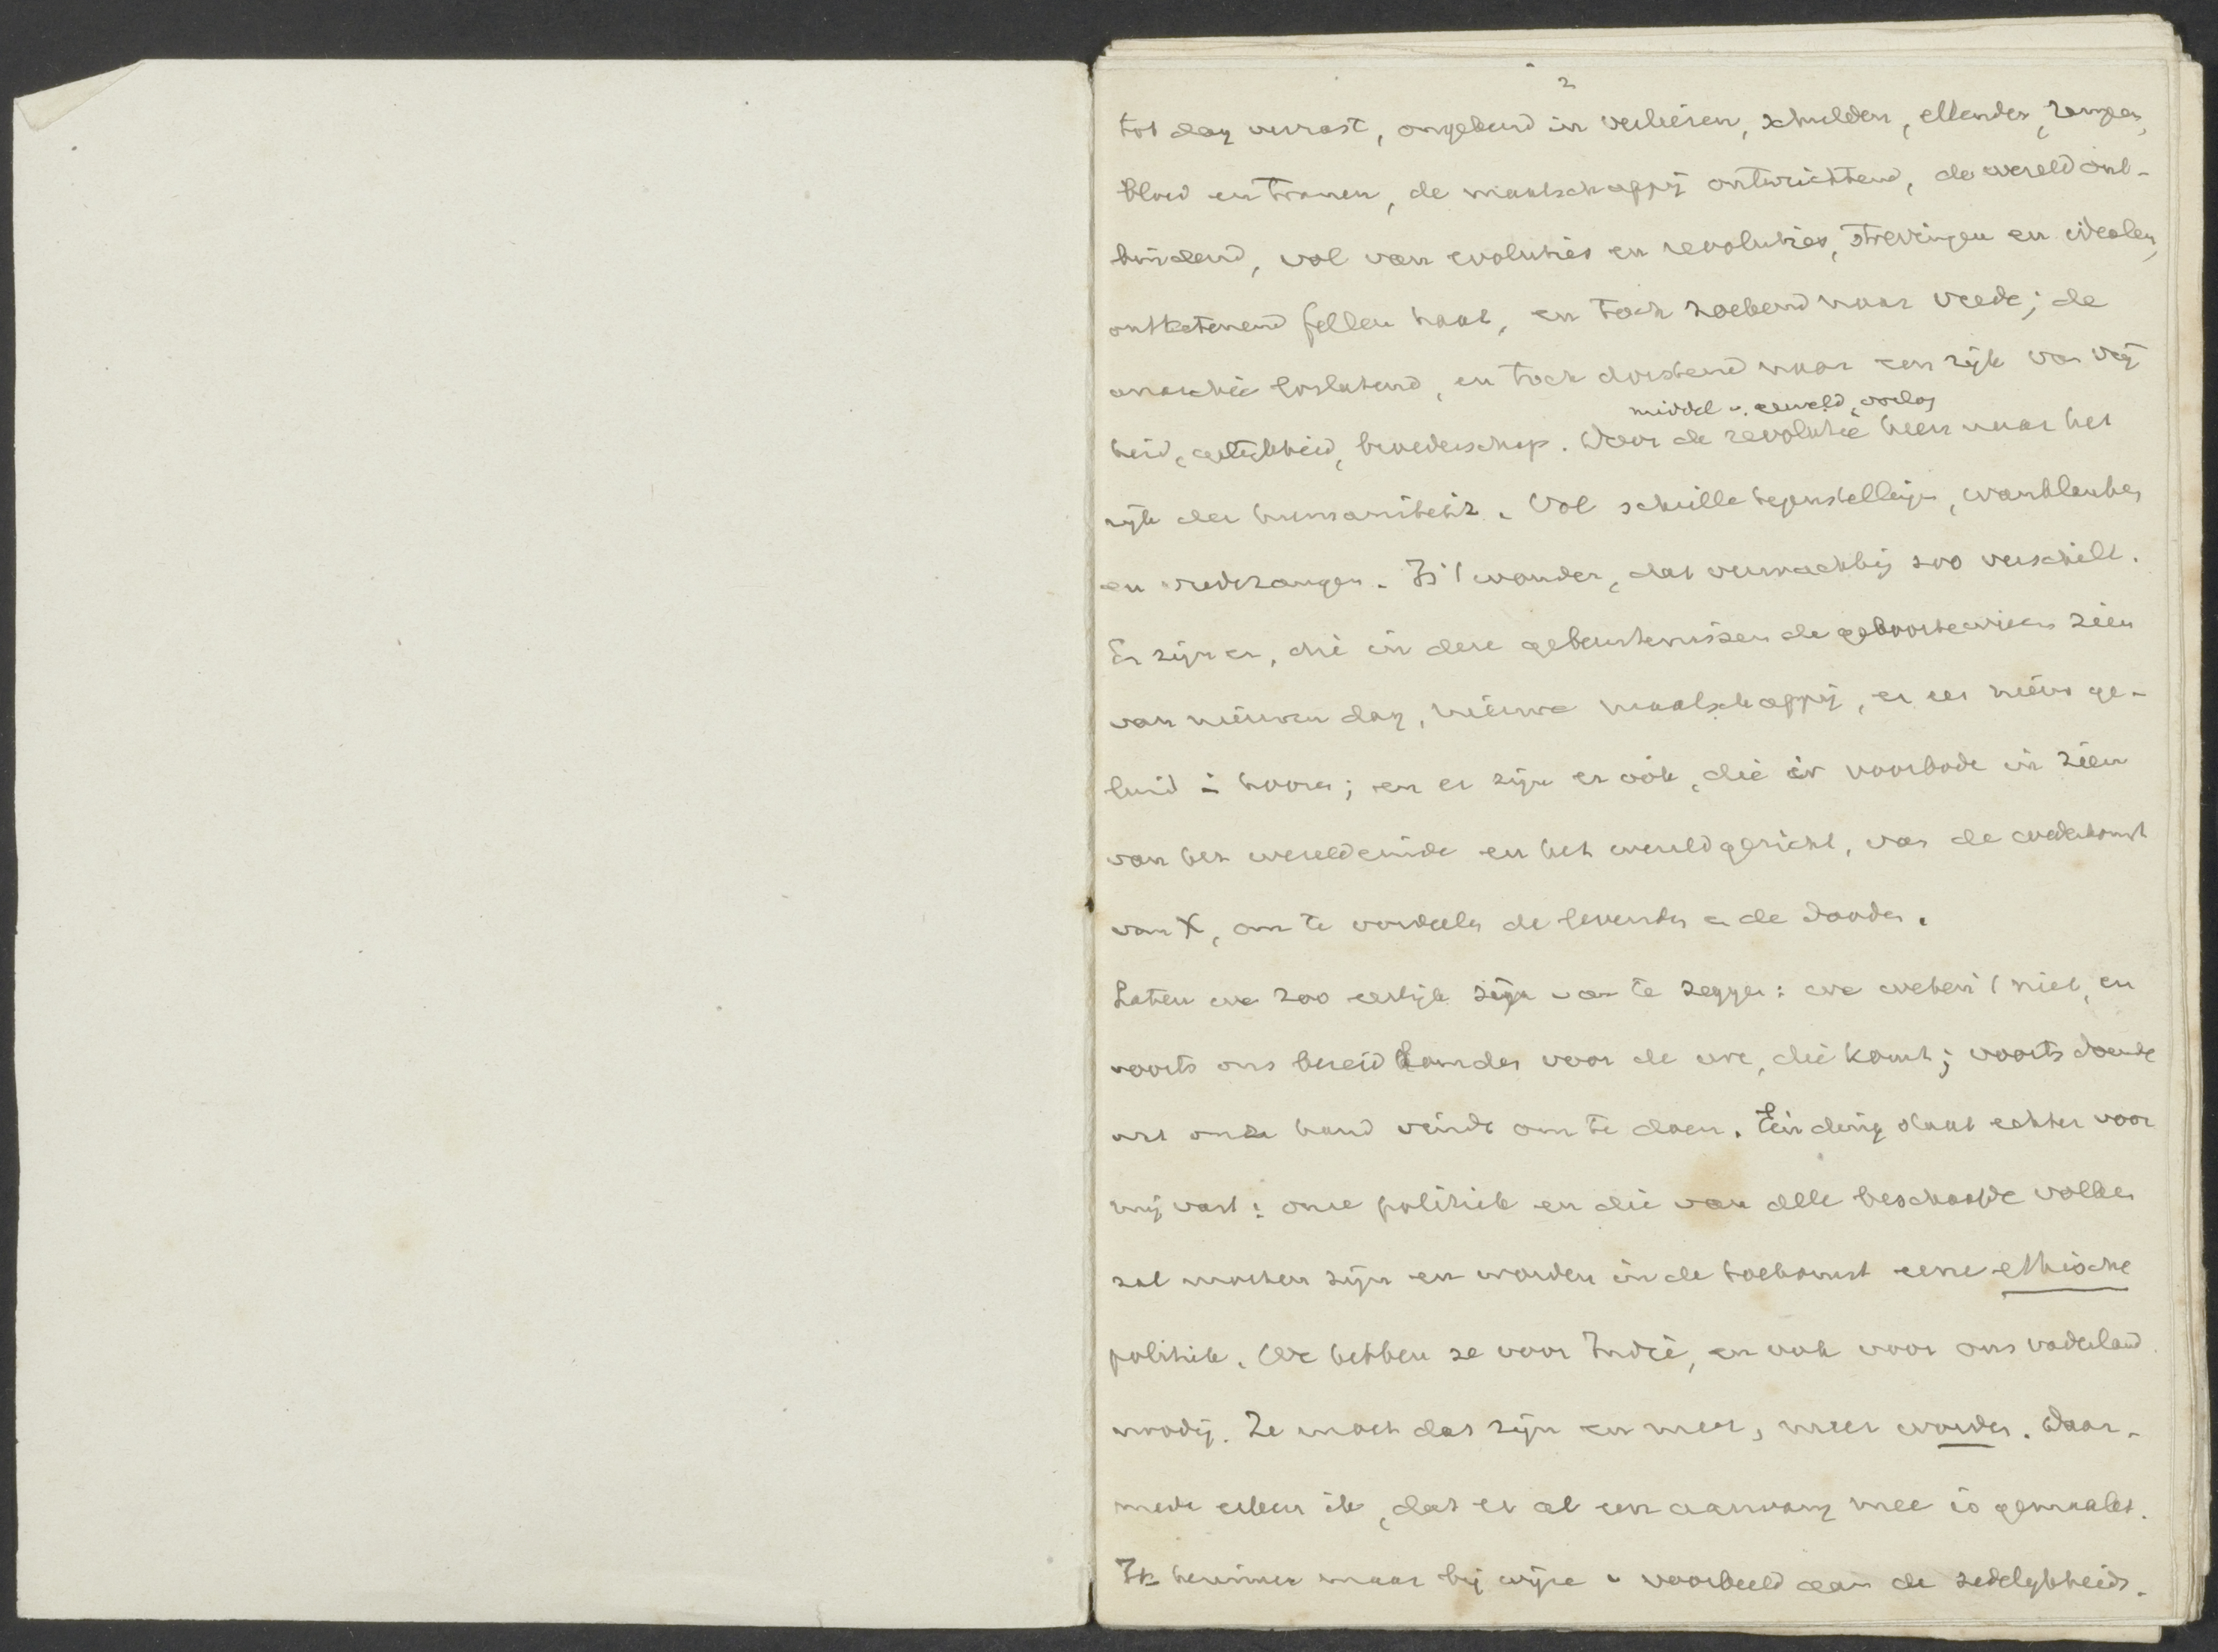 2
tot dag verrast, ongekend in verliezen, schulden, ellenden, rampen,
bloed en tranen, de maatschappij ontwrichtend, de wereld ont-
bindend, vol van evoluties en revoluties, strevingen en idealen,
ontketenend fellen haat, en toch zoekend naar vrede; de
anarchie loslatend, en toch dorstend naar een rijk van vrij
middel v. geweld, oorlog
heid, gelijkheid, broederschap. Door de revolutie heen naar het
rijk der humaniteit. Vol schrille tegenstellingen, wanklanken
en vredezangen. Is 't wonder, dat verwachting zoo verschilt.
Er zijn er, die in deze gebeurtenissen de geboorteweeën zien
van nieuwen dag, nieuwe maatschappij, er een nieuw ge-
luid in hooren; en er zijn er ook, die er voorbode in zien
van het wereldeinde en het wereldgericht, van de wederkomst
van X, om te oordeelen de levenden en de dooden.
Laten we zoo eerlijk zijn van te zeggen: we weten 't niet, en
voorts ons bereid houden voor de ure, die komt; voorts doende
wat onze hand vindt om te doen. Één ding staat echter voor
mij vast: onze politiek en die van alle beschaafde volken
zal moeten zijn en worden in de toekomst eene ethische
politiek. We hebben ze voor Indië, en ook voor ons vaderland
noodig. Ze moet dat zijn en meer, meer worden. Daar-
mede erken ik, dat er al een aanvang mee is gemaakt.
Ik herinner maar bij wijze v voorbeeld aan de zedelijkheids-